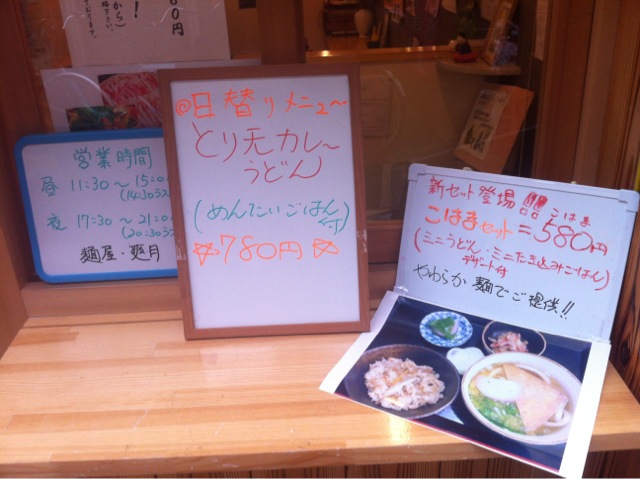 00円
から)
営業時間
昼 11:30～15:0
(14:30ラス
夜 17:30～21:0
(20:30ラス
麺屋・爽月
@日替りメニュー
とり天カレー
うどん
(めんたいごはん付)
☆780円☆
新セット登場!!
こはま
こはまセット=580円
(ミニうどん・ミニたき込みごはん)
デザート付
やわらか麺でご提供!!